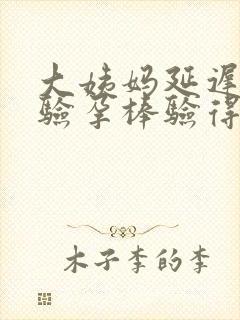 大姨妈延迟
验孕棒验得
木子李的李